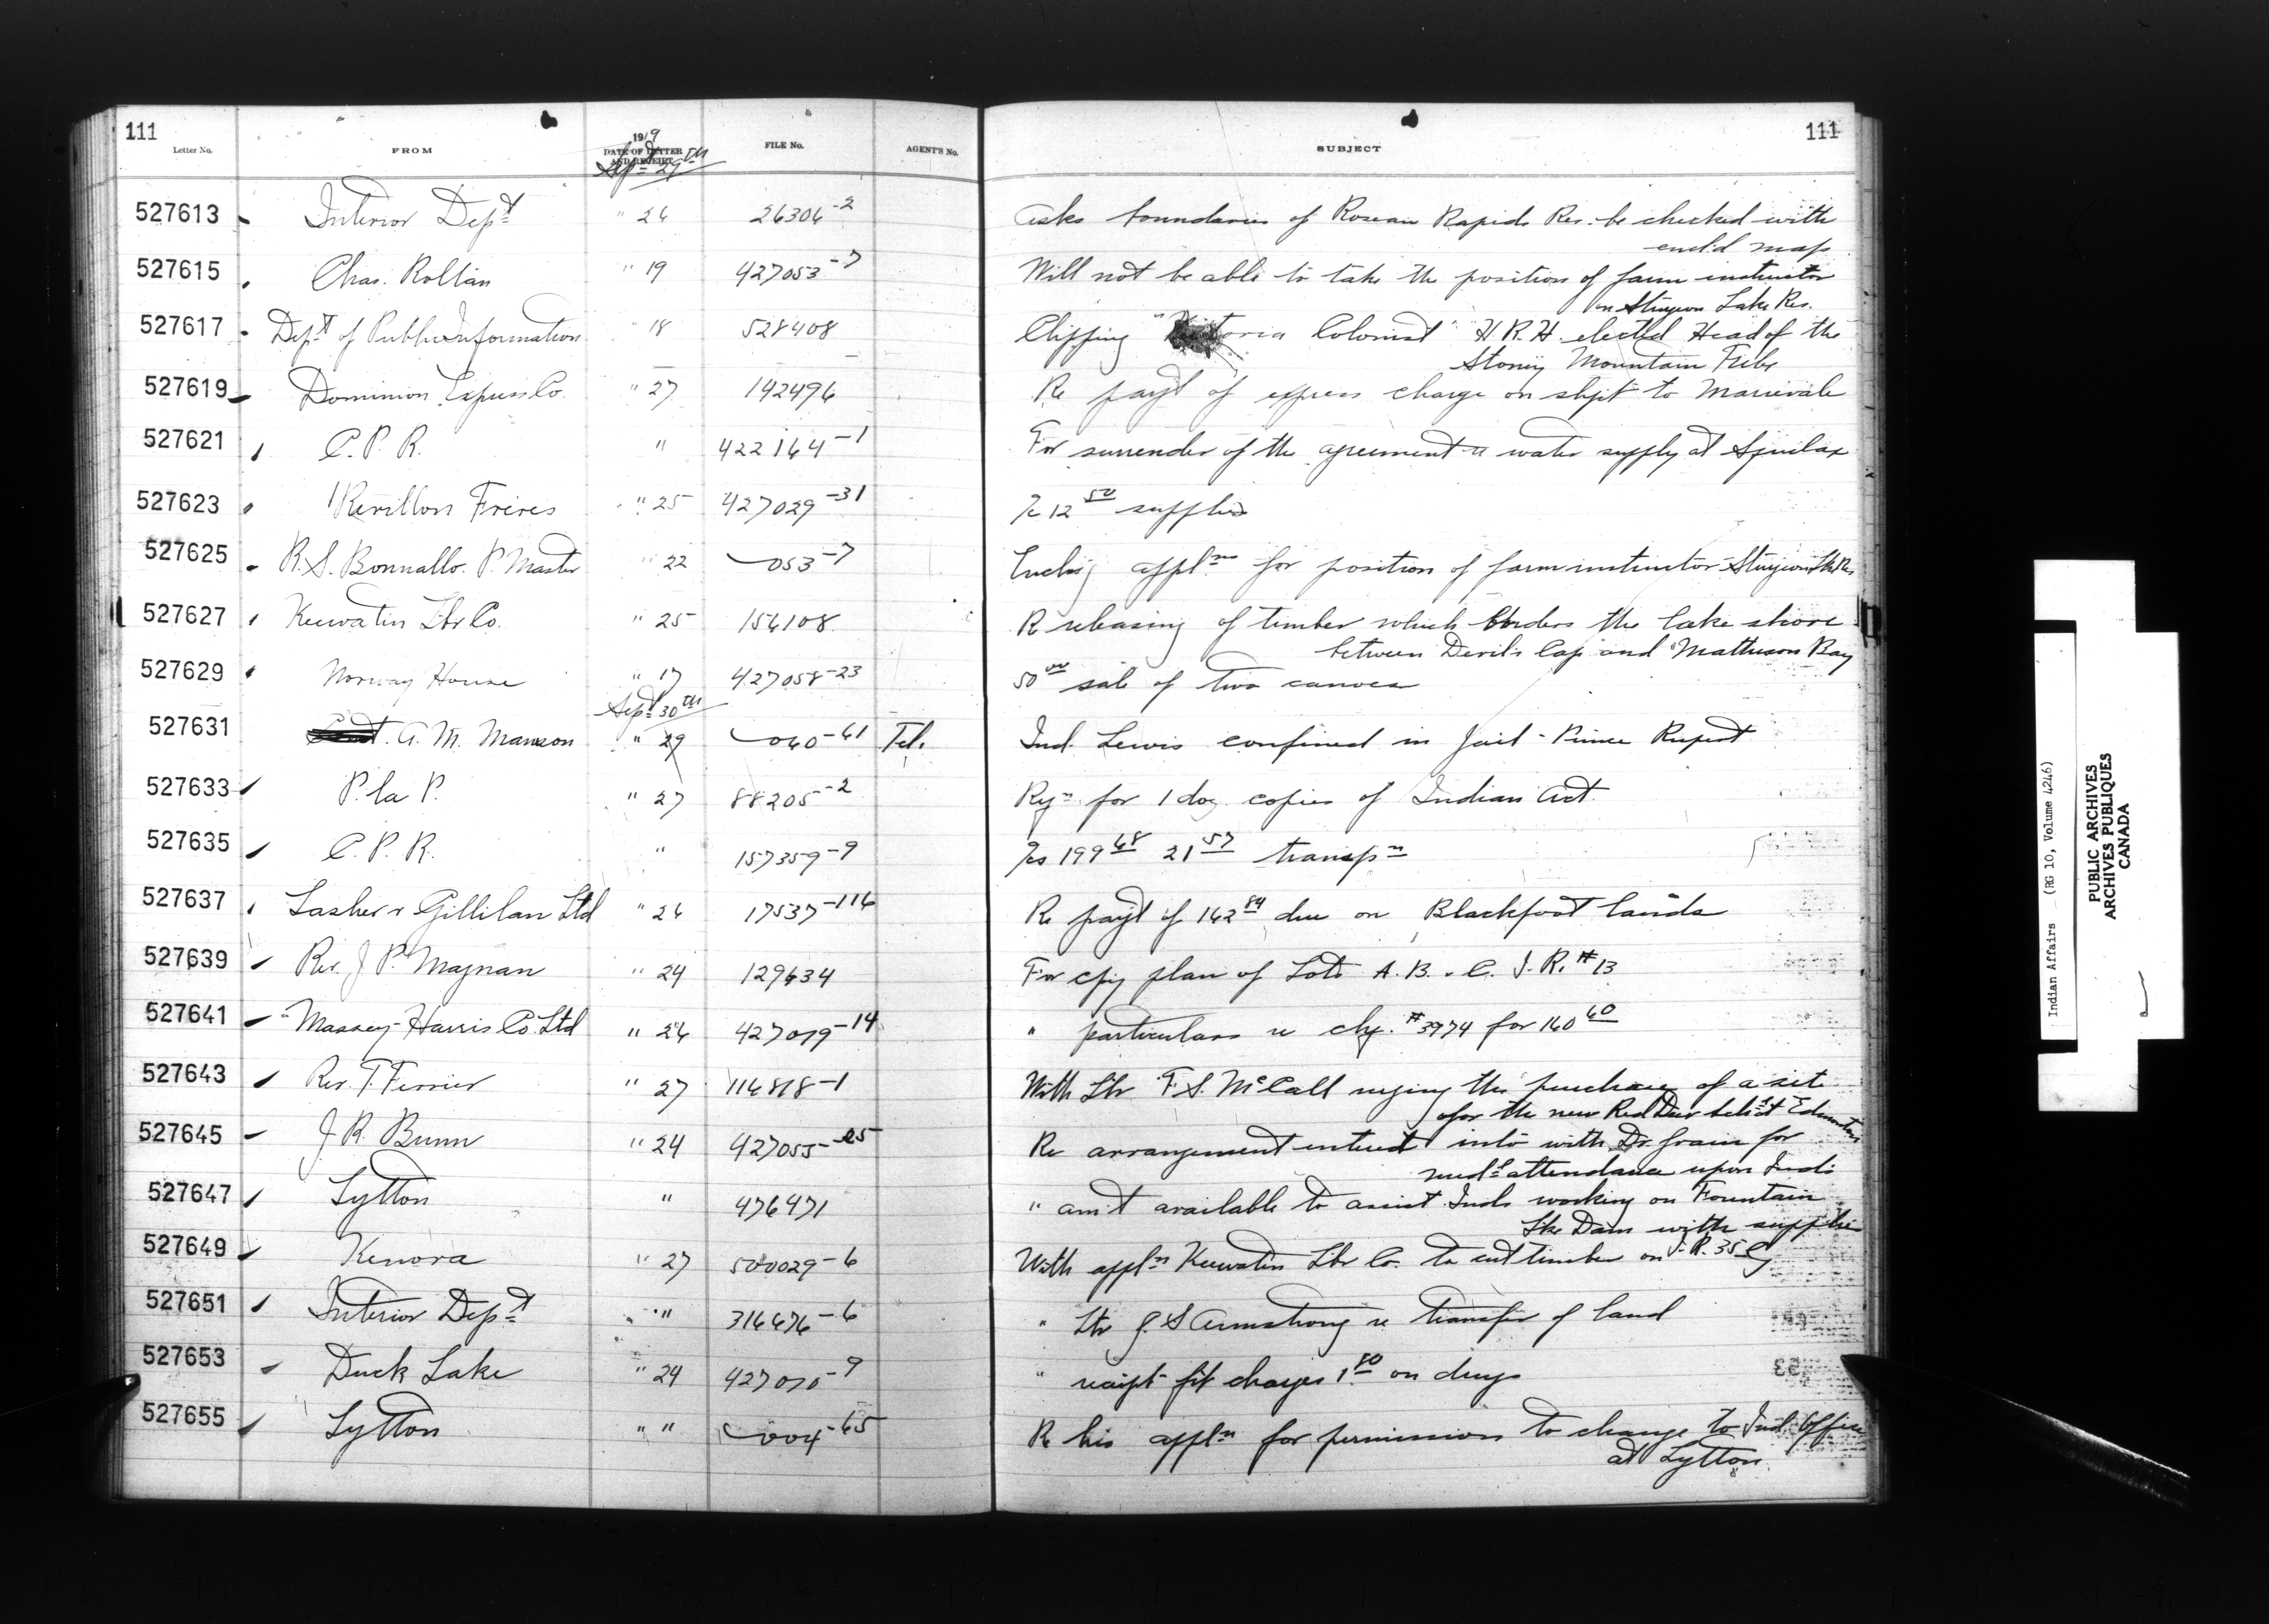 111
Letter No. FROM 1919 DATE OF LETTER AND RECEIPT FILE No. AGENT'S No. SUBJECT 111
Sept 29th
527613 Interior Dept " 26 26306-2 Asks boundaries of Roseau Rapids Res. be checked with
encl'd map
527615 Chas. Rollan " 19 427053-7 Will not be able to take the position of farm instructor
on Sturgeon Lake Res.
527617 Dept of Public Information " 18 528408 Clipping "Victoria Colonist" H.R.H. elected Head of the
Stoney Mountain Tribe
527619 Dominion Express Co. " 27 142496 Re payt of express charge on shpt to Marieval
527621 C. P. R. " 422164-1 For surrender of the agreement re water supply at
527623 Revillon Freres " 25 427029-31 /c 12 50 supplies
527625 R. S. Bonnallo. P. Master " 22 053-7 Enclos'g appln for position of farm instructor Sturgeon Lke Res
527627 Keewatin Lbr Co. " 25 156108 Re releasing of timber which borders the lake shore
between Devil's Cap and Matheson Bay
527629 Norway House " 17 427058-23 50 00 sale of two canoes
Sept 30th
527631 A. M. Manson " 29 060-61 Tel. Ind. Lewis confined in Jail - Prince Rupert
527633 P. la P. " 27 88205-2 Rqn for 1 doz copies of Indian Act
527635 C. P. R. " 157359-9 /cs 199 68 21 57 transpn
527637 Lasher & Gillilan Ltd " 26 17537-116 Re payt of 162 84 due on Blackfoot lands
527639 Rev. J. P. Magnan " 24 129634 For cpy plan of Lots A. B. & C. I. R. #13
527641 Massey-Harris Co. Ltd " 26 427019-14 " particulars re chq. #3974 for 160 60
527643 Rev. T. Ferrier " 27 116818-1 With Ltr F. S. McCall urging the purchase of a site
for the new Red Deer Schl at Edmonton
527645 J. R. Bunn " 24 427055-25 Re arrangement entered into with Dr. Grain for
medl attendance upon Inds
527647 Lytton " 476471 " am't available to assist Inds working on Fountain
Lke Dam with supplies
527649 Kenora " 27 500029-6 With appln Keewatin Lbr Co. to cut timber on I. R. 35
527651 Interior Dept " " 316676-6 " Ltr J. S. Armstrong re transfer of land
527653 Duck Lake " 24 427010-9 " receipt frt charges 1.80 on drugs
527655 Lytton " " 004-65 Re his appln for permission to change to Ind. Office
at Lytton
Indian Affairs (RG 10, Volume 4246)
PUBLIC ARCHIVES
ARCHIVES PUBLIQUES
CANADA